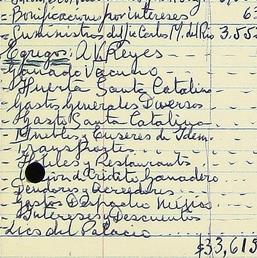 " Bonificaciones por intereses 63
" Suministros del Tte Carlos M. del Rio 3.55
Egresos: A. V. Reyes
Ganado Vacuno
Huerta Santa Catalina
Gastos Generales Diversos
Gasto Santa Catalina
Muebles y Enseres de Idem.
Transporte
Hoteles y Restaurants
de Crédito Ganadero
Deudores y Acreedores
Gastos Despacho
Intereses y Descuentos
del Palacio
$33,613